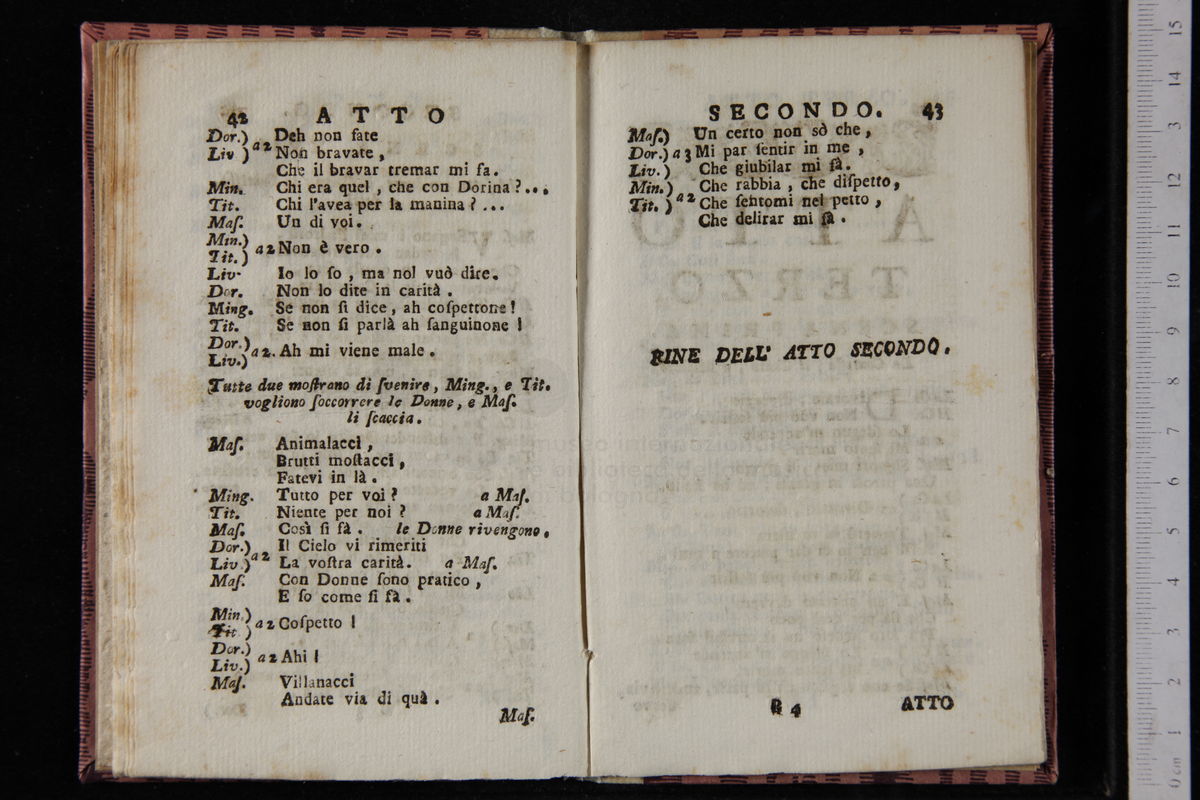 42 ATTO
Dor.) a2 Deh non fate
Liv ) Non bravate,
Che il bravar tremar mi fa.
Min. Chi era quel, che con Dorina?...
Tit. Chi l'avea per la manina?...
Maſ. Un di voi.
Min.)
Tit.) a2 Non è vero.
Liv. Io lo ſo, ma nol vuò dire.
Dor. Non lo dite in carità.
Ming. Se non ſi dice, ah coſpettone!
Tit. Se non ſi parlà ah ſanguinone!
Dor.)
Liv.) a2. Ah mi viene male.
Tutte due moſtrano di ſvenire, Ming., e Tit.
vogliono ſoccorrere le Donne, e Maſ.
li ſcaccia.
Maſ. Animalacci,
Brutti moſtacci,
Fatevi in là.
Ming. Tutto per voi? a Maſ.
Tit. Niente per noi? a Maſ.
Maſ. Così ſi fà. le Donne rivengono.
Dor.) a2 Il Cielo vi rimeriti
Liv.) La voſtra carità. a Maſ.
Maſ. Con Donne ſono pratico,
E ſo come ſi fà.
Min.)
Tit ) a2 Coſpetto!
Dor.)
Liv.) a2 Ahi!
Maſ. Villanacci
Andate via di quà.
Maſ.
SECONDO. 43
Maſ.) Un certo non sò che,
Dor.) a3 Mi par ſentir in me,
Liv.) Che giubilar mi fà.
Min.) a2 Che rabbia, che diſpetto,
Tit. ) Che ſentomi nel petto,
Che delirar mi fà.
FINE DELL' ATTO SECONDO.
B 4 ATTO